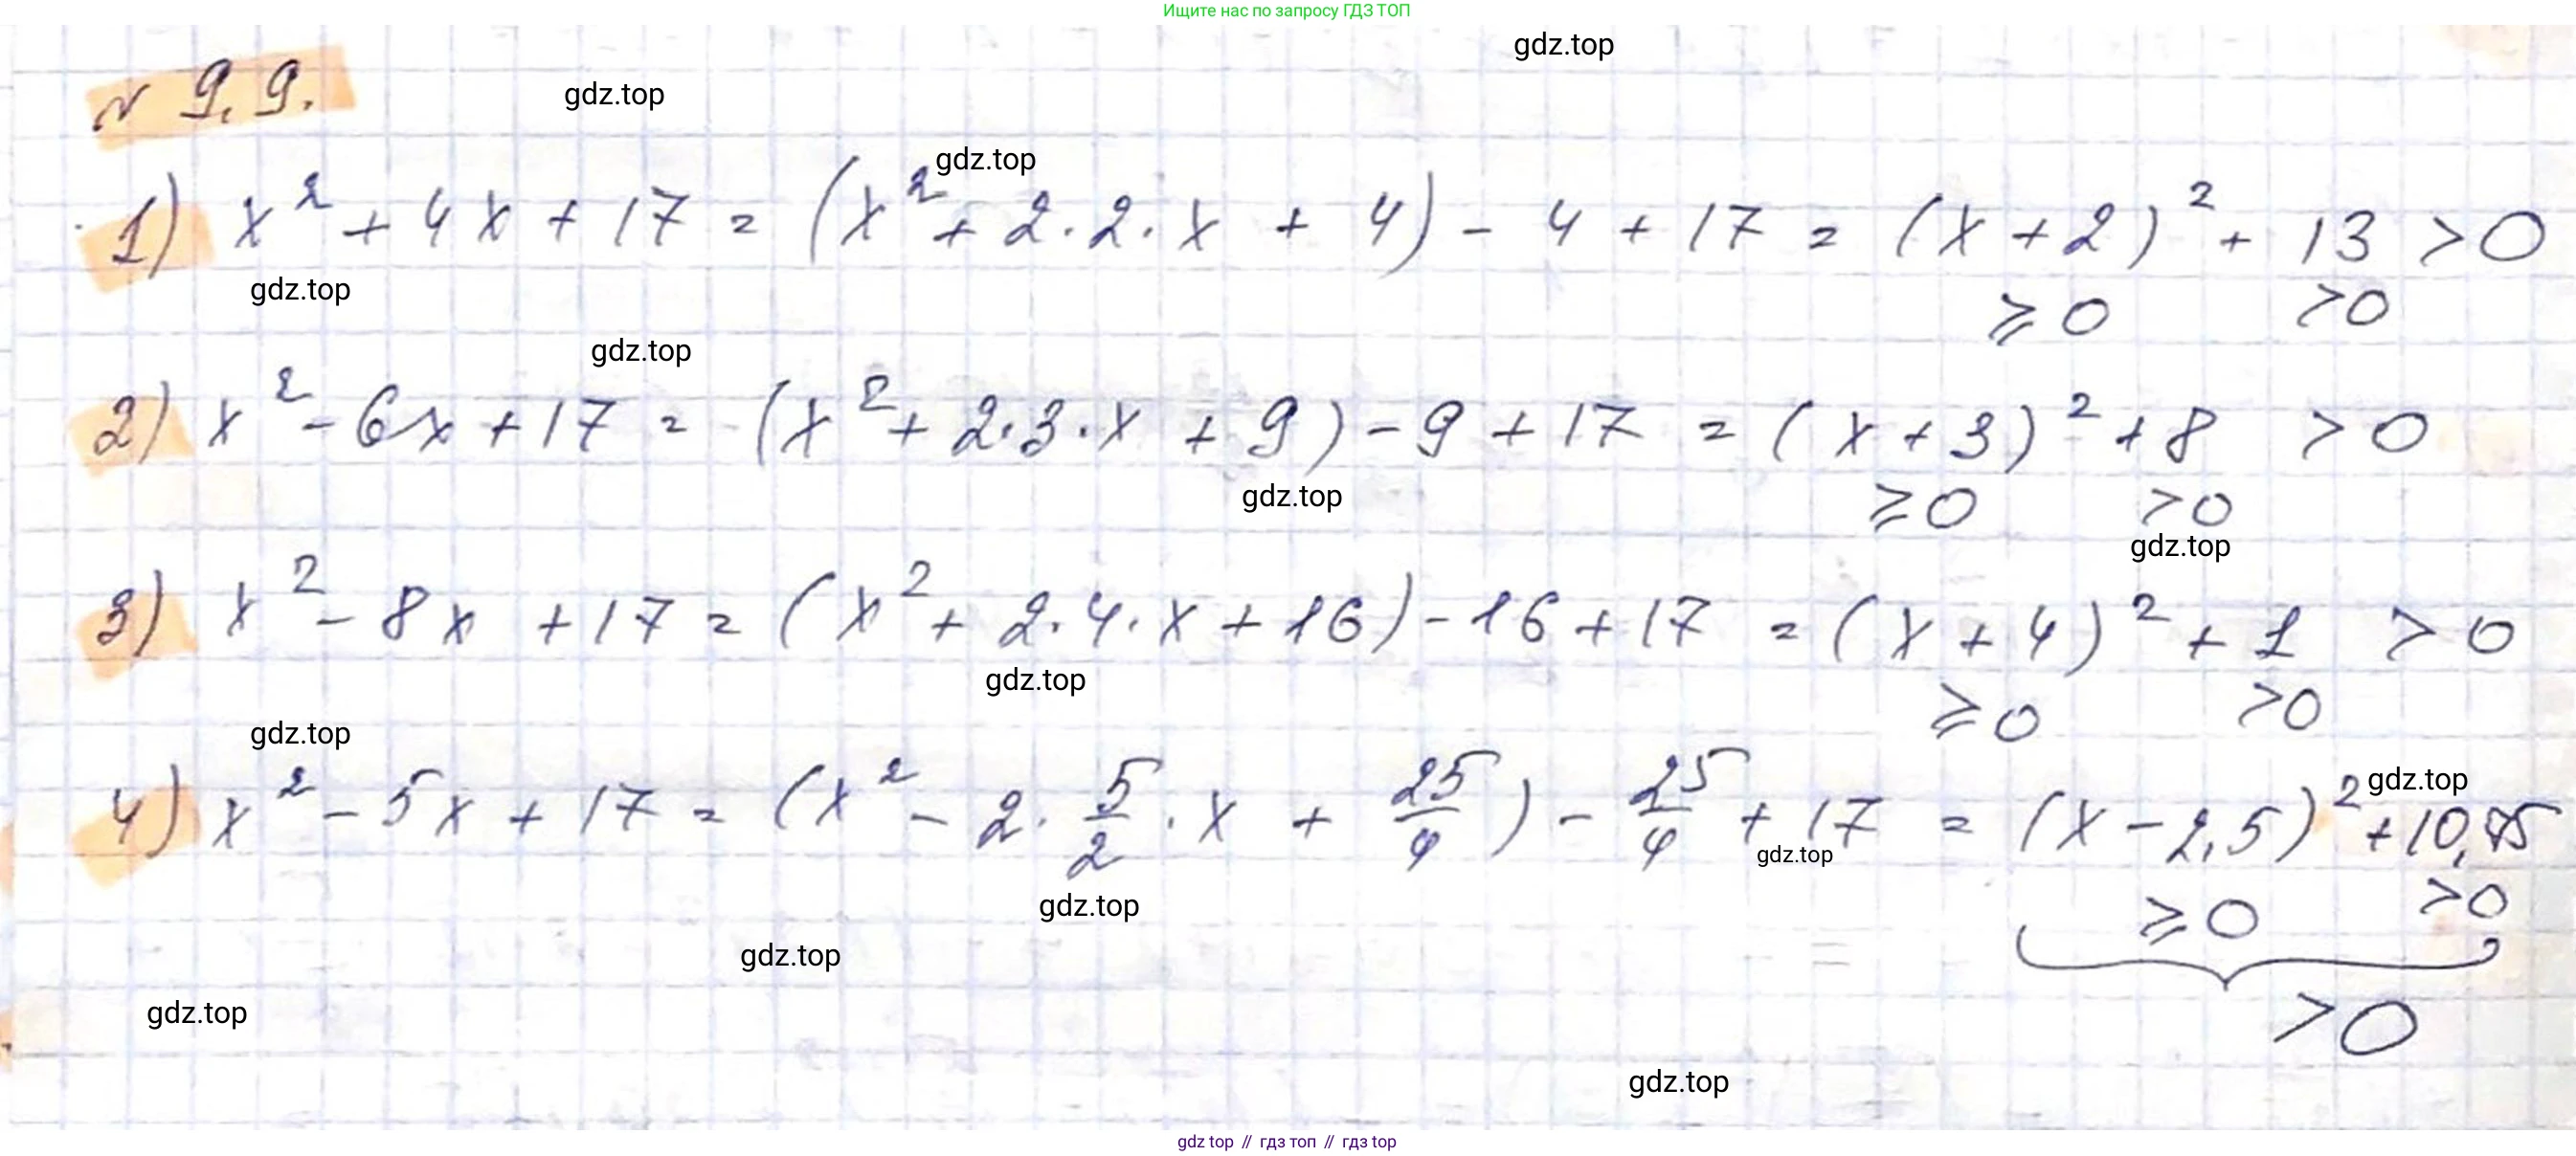 Ищите нас по запросу ГДЗ ТОП
gdz.top
№ 9.9.
gdz.top
gdz.top
1) x² + 4x + 17 = (x² + 2·2·x + 4) - 4 + 17 = (x + 2)² + 13 > 0
gdz.top
⩾ 0 > 0
gdz.top
2) x² - 6x + 17 = (x² + 2·3·x + 9) - 9 + 17 = (x + 3)² + 8 > 0
gdz.top
⩾ 0 > 0
gdz.top
3) x² - 8x + 17 = (x² + 2·4·x + 16) - 16 + 17 = (x + 4)² + 1 > 0
gdz.top
⩾ 0 > 0
gdz.top
gdz.top
4) x² - 5x + 17 = (x² - 2·5/2·x + 25/4) - 25/4 + 17 = (x - 2,5)² + 10,75
gdz.top
gdz.top
⩾ 0 > 0
gdz.top
gdz.top
> 0
gdz.top
gdz top // гдз топ // гдз top